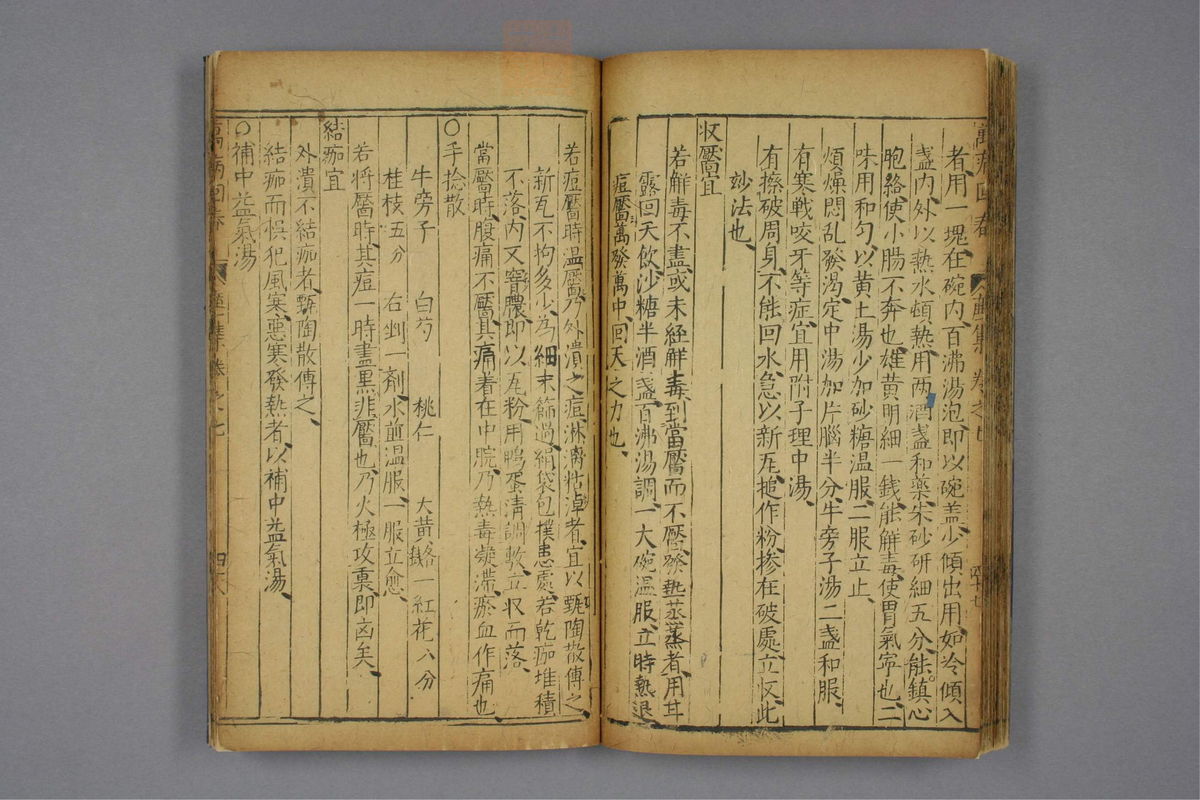 者用一塊在碗内百沸湯泡即以碗盖少傾出用如冷傾入
盞内外以熱水頓熱用两酒盞和藥朱砂研細五分能鎮心
胞絡使小腸不奔也雄黄明細一錢能觧毒使胃氣寧也二
味用和匀以黄土湯少加砂糖温服二服立止
煩燥悶亂發渴定中湯加片腦半分牛旁子湯二盞和服
有寒戰咬牙等症宜用附子理中湯
有擦破周身不能回水急以新瓦搥作粉摻在破處立収此
妙法也
収靨宜
若觧毒不盡或未経觧毒到當靨而不靨發熱蒸蒸者用甘
露回天飲沙糖半酒盞百沸湯調一大碗温服立時熱退
痘靨萬發萬中回天之力也
若痘靨時温靨乃外潰之痘淋漓粘淖者宜以甄陶散傅之
新瓦不拘多少為細末篩過絹袋包撲患處若乾痂堆積
不落内又窨膿即以瓦粉用鴨蛋淸調敷立収而落
當靨時腹痛不靨其痛着在中脘乃熱毒凝滯瘀血作痛也
○手捻散
牛旁子 白芍 桃仁 大黄各一錢 紅花八分
桂枝五分 右剉一劑水煎温服一服立愈
若将靨時其痘一時盡黒非靨也乃火極攻裏即凶矣
結痂宜
外潰不結痂者甄陶散傅之
結痂而悞犯風寒惡寒發熱者以補中益氣湯
○補中益氣湯
萬病回春 卷之七